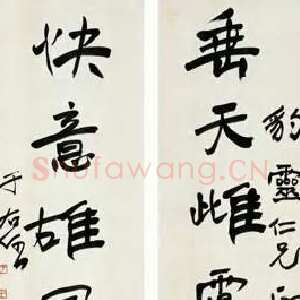 豹靈仁兄
垂天雌
快意雄
于右任
Shufawang.CN